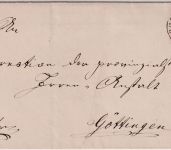 An
rection der provinzial
Irren-Anstalt
Göttingen